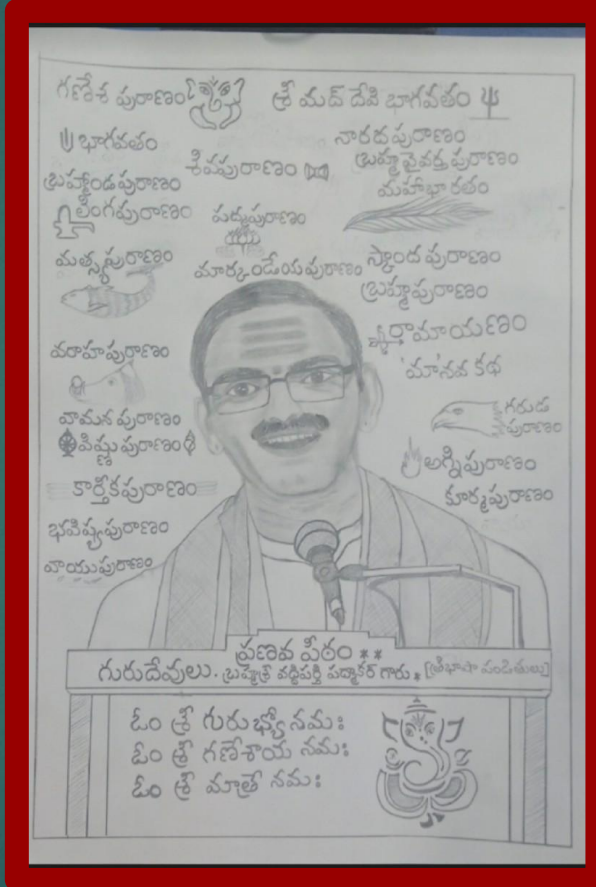 గణేశ పురాణం
శ్రీ మద్ దేవి భాగవతం
భాగవతం
నారదపురాణం
శివపురాణం
బ్రహ్మవైవర్త పురాణం
బ్రహ్మాండపురాణం
మహాభారతం
లింగపురాణం
పద్మపురాణం
మత్స్యపురాణం
మార్కండేయపురాణం
స్కాంద పురాణం
బ్రహ్మపురాణం
రామాయణం
వరాహపురాణం
'మా'నవ కథ
గరుడ
పురాణం
వామన పురాణం
విష్ణుపురాణం
అగ్నిపురాణం
కార్తీకపురాణం
కూర్మపురాణం
భవిష్యపురాణం
వాయుపురాణం
ప్రణవ పీఠం **
గురుదేవులు. బ్రహ్మశ్రీ వద్దిపర్తి పద్మాకర్ గారు * [త్రిభాషా పండితులు]
ఓం శ్రీ గురుభ్యో నమః
ఓం శ్రీ గణేశాయ నమః
ఓం శ్రీ మాత్రే నమః